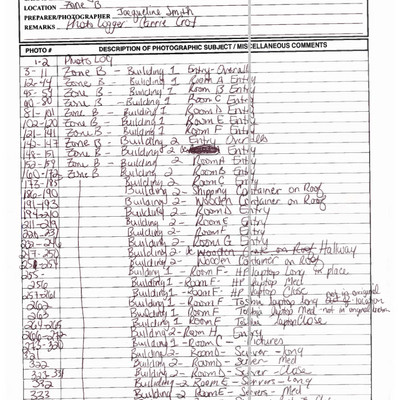 LOCATION Zone B
PREPARER/PHOTOGRAPHER Jacqueline Smith
REMARKS Photo Logger
PHOTO # DESCRIPTION OF PHOTOGRAPHIC SUBJECT / MISCELLANEOUS COMMENTS
1-2 Photo Log
3-11 Zone B - Building 1 Entry-Overall
12-44 Zone B - Building 1 Room A Entry
45-59 Zone B - Building 1 Room B Entry
60-80 Zone B - Building 1 Room C Entry
81-101 Zone B - Building 1 Room D Entry
102-120 Zone B - Building 1 Room E Entry
121-141 Zone B - Building 1 Room F Entry
142-147 Zone B - Building 2 Entry Overalls
148-151 Zone B - Building 2 Entry
152-159 Zone B - Building 2 Room A Entry
160-172 Zone B Building 2 Room B Entry
173-185 Building 2 Room C Entry
186-190 Building 2 - Shipping Container on Roof
191-193 Building 2 - Wooden Container on Roof
194-210 Building 2 - Room D Entry
211-219 Building 2 - Room E Entry
Building 2 - Room F Entry
Building 2 - Room G Entry
217-250 Building 2 - on Roof Hallway
Building 2 - Wooden Container on Roof
255- Building 1 - Room F - HP laptop Long in place
256 Building 1 - Room F - HP laptop Med
257-261 Building 1 - Room F - HP laptop Close
262 Building 1 Room F Toshiba laptop long not in original location
263 Building 1 Room F Toshiba laptop Med not in original
264-265 Building 1 Room F Toshiba laptop Close
Building 2 - Room H Entry
Building 1 - Room C - Pictures
321 Building 2 - Room D - Server - Long
322 Building 2 - Room D - Server - Med
323-331 Building 2 - Room D - Server - Close
332 Building 2 Room E - Servers - Long
333 Building 2 Room E - Servers - Med